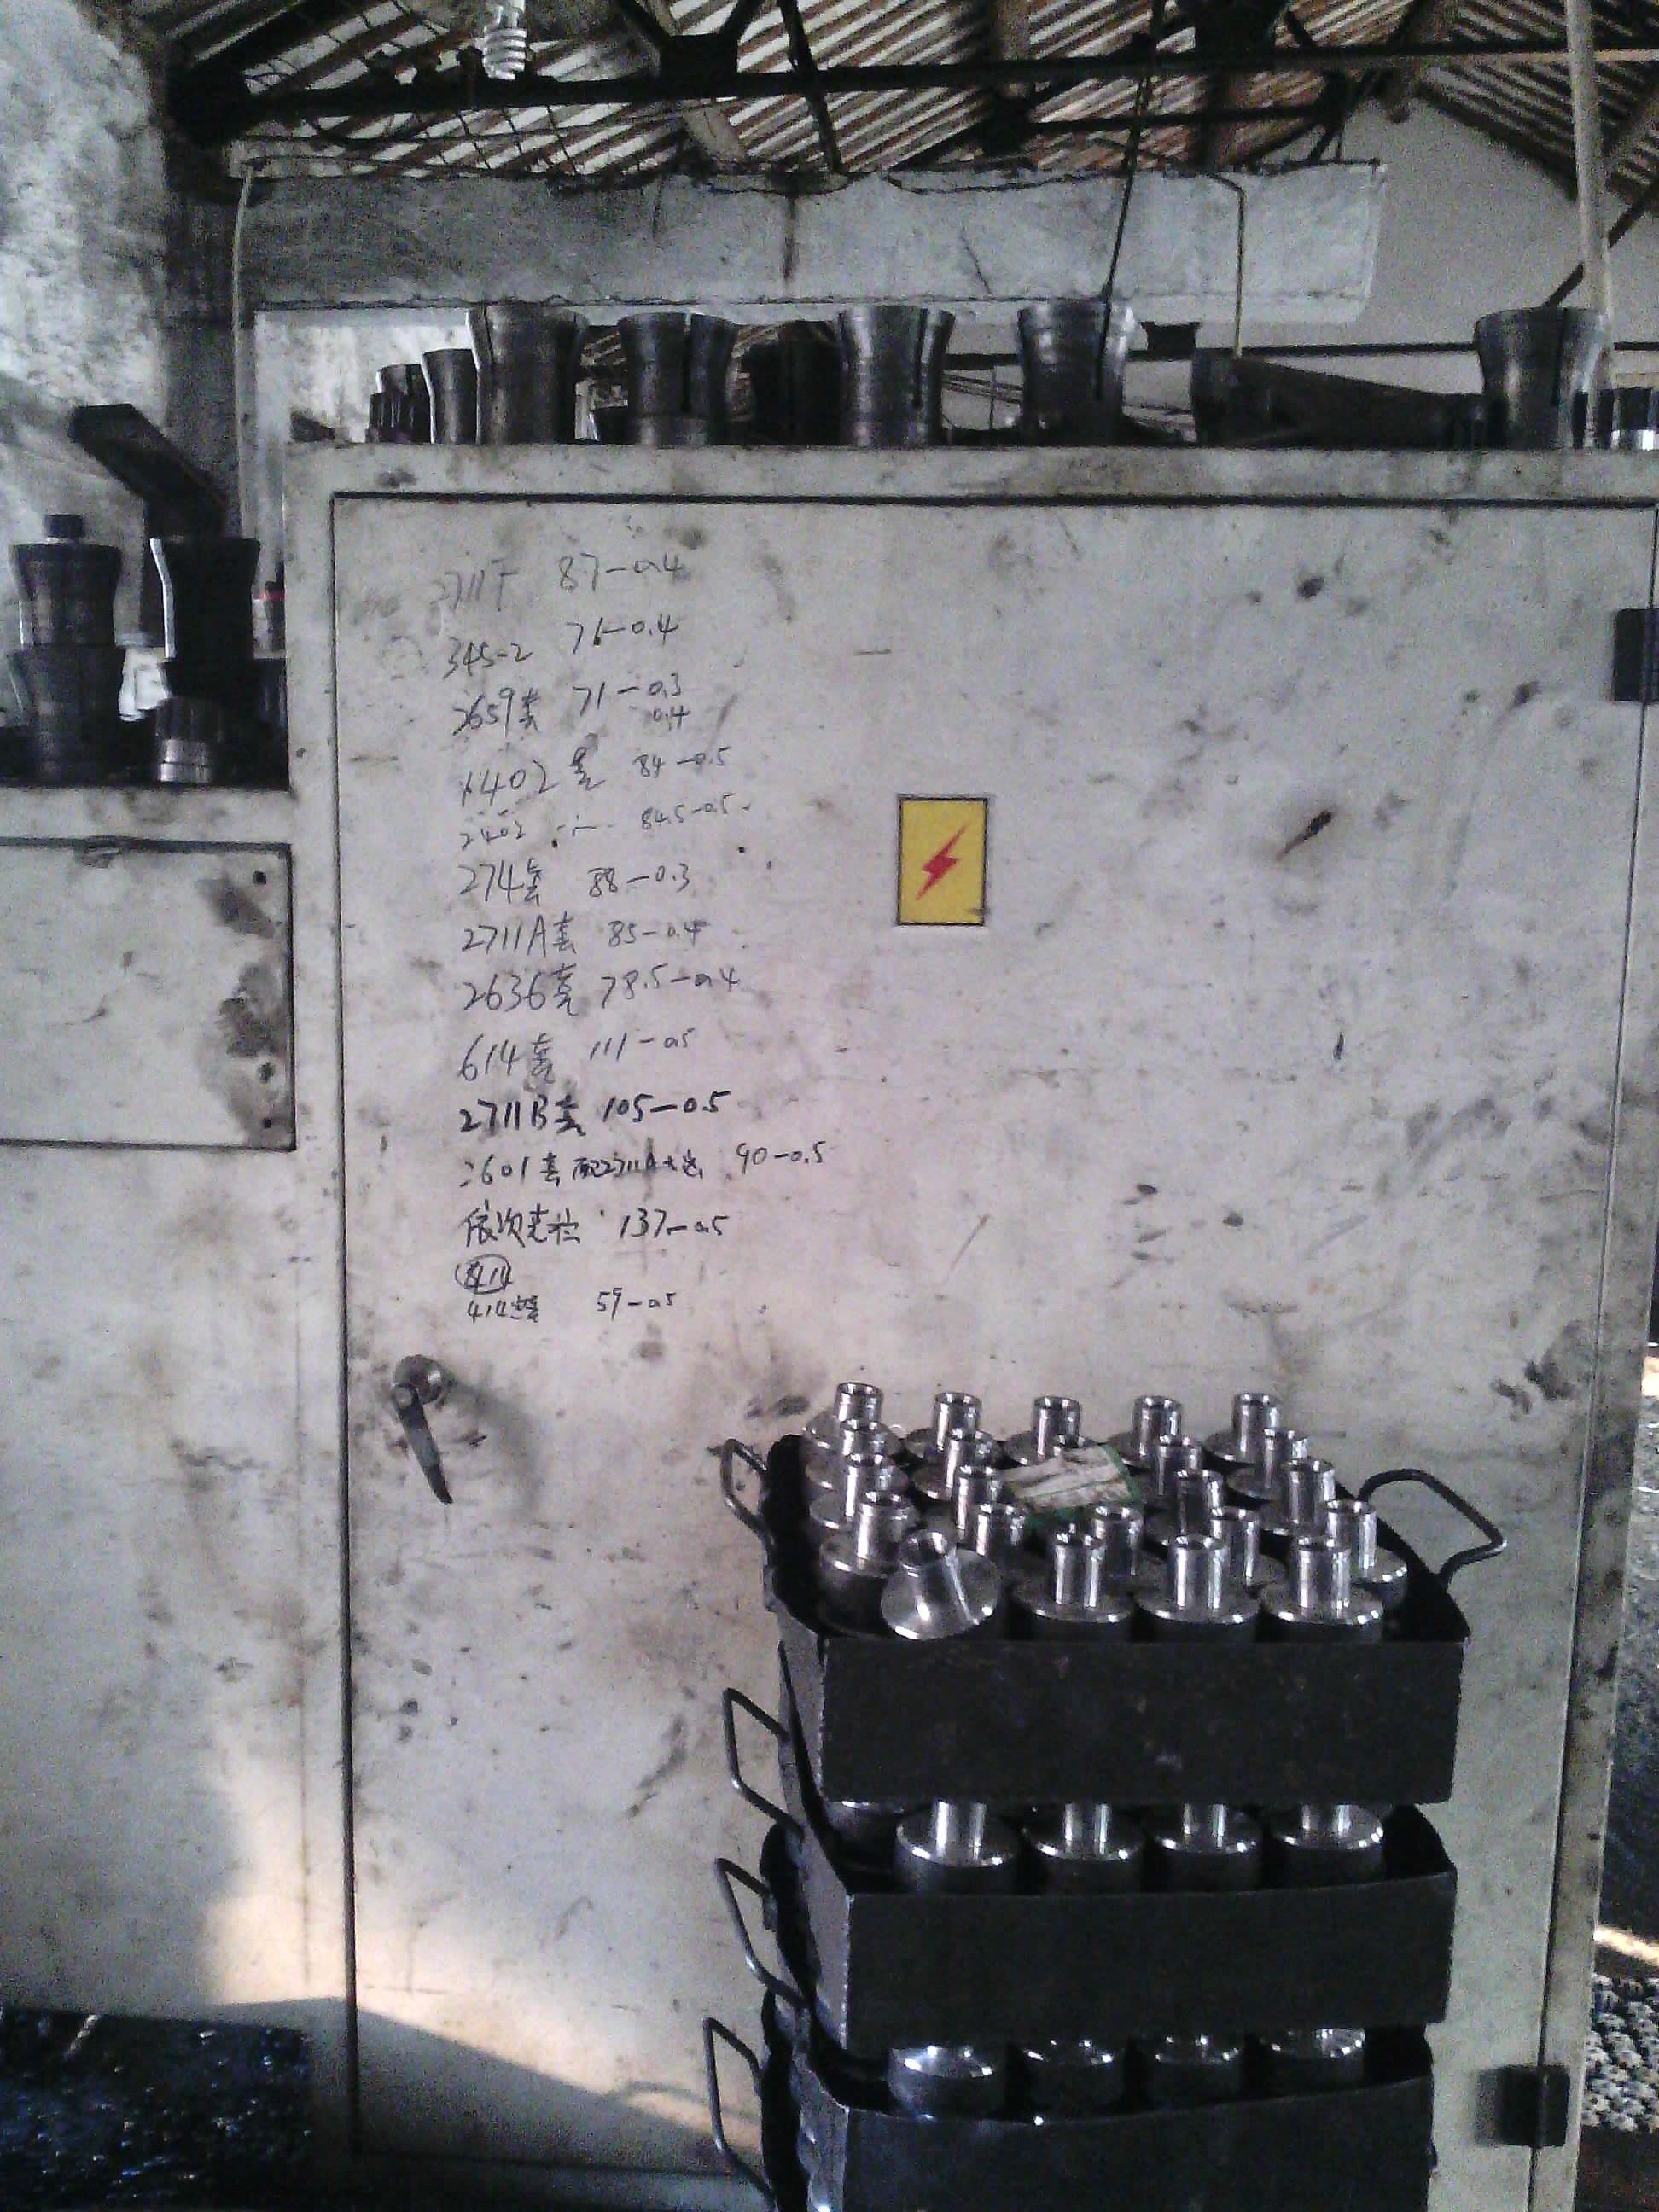 2711T 87-0.4
345-2 76-0.4
2659套 71-0.3
0.4
402 84-0.5
2402 84.5-0.5
274套 88-0.3
2711A套 85-0.4
2636壳 78.5-0.4
614壳 111-0.5
2711B套 105-0.5
2601套配2711A 90-0.5
依次 137-0.5
414
414 59-0.5